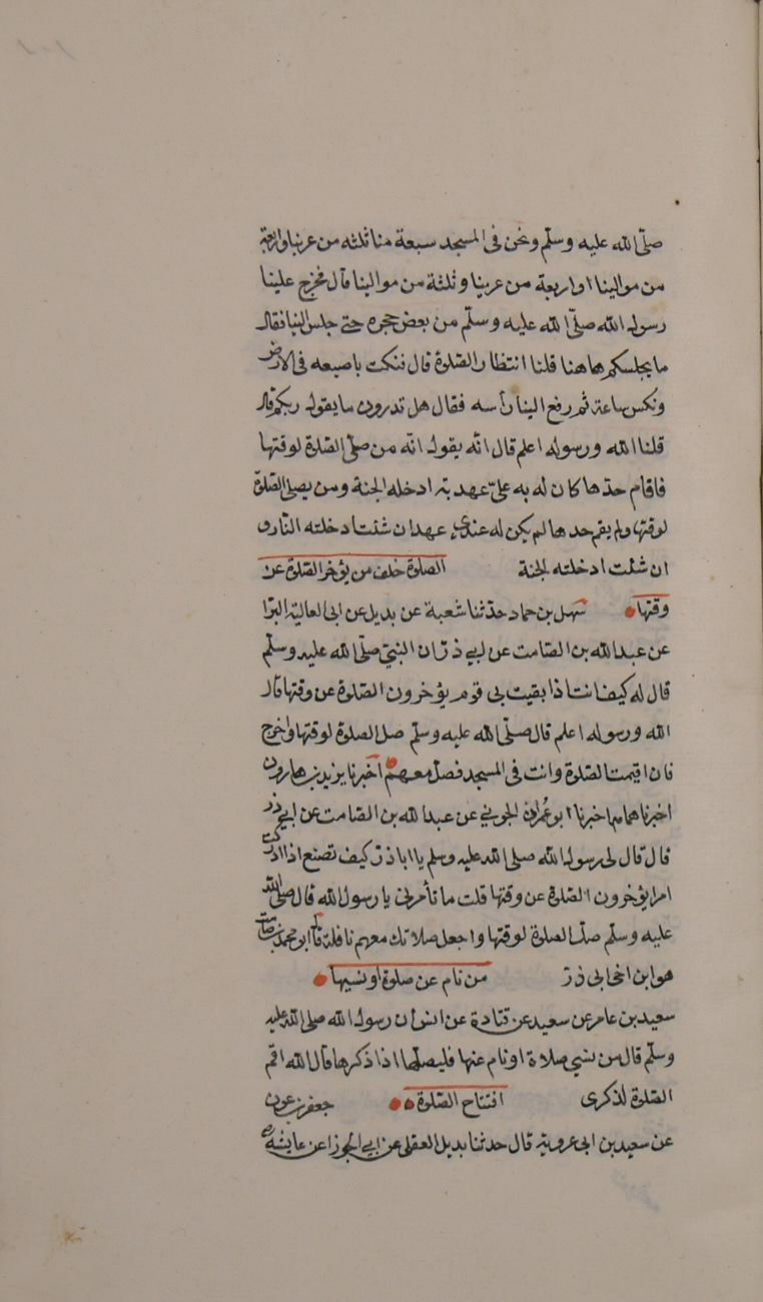 صلّى الله عليه وسلّم ونحن فى المسجد سبعة منا ثلثه من عربنا واربعة
من موالينا او اربعة من عربنا وثلثة من موالينا قال فخرج علينا
رسول الله صلّى الله عليه وسلّم من بعض حجره حتى جلس الينا فقال
ما يجلسكم هاهنا قلنا انتظار الصّلوة قال فنكت باصبعه فى الارض
ونكس ساعة ثم رفع الينا رأسه فقال هل تدرون ما يقول ربكم قال
قلنا الله ورسوله اعلم قال انّه يقول انّه من صلّى الصّلوة لوقتها
فاقام حدّها كان له به علىّ عهد به ادخله الجنة ومن يصلى الصّلوة
لوقتها ولم يقم حدها لم يكن له عندى عهد ان شئت ادخلته النّار و
ان شئت ادخلته الجنة الصلوة خلف من يؤخر الصّلوة عن
وقتها سهل بن حماد حدّثنا شعبة عن بديل عن ابى العالية البرّا
عن عبد الله بن الصّامت عن ابى ذرّ ان النبىّ صلّى الله عليه وسلّم
قال له كيف انت اذا بقيت فى قوم يؤخرون الصّلوة عن وقتها قال
الله ورسوله اعلم قال صلّى الله عليه وسلّم صل الصلوة لوقتها واخرج
فان اقيمت الصّلوة وانت فى المسجد فصلّ معهم اخبرنا يزيد بن هارون
اخبرنا همام اخبرنا ابو عمران الجونى عن عبد الله بن الصّامت عن ابى ذر
قال قال لى رسول الله صلى الله عليه وسلم يا ابا ذرّ كيف تصنع اذا ادركت
امرا يؤخرون الصّلوة عن وقتها قلت ما تأمرنى يا رسول الله قال صلى الله
عليه وسلّم صلّ الصلوة لوقتها واجعل صلاتك معهم نافلة قال ابو محمد بن صامت
هو ابن اخى ابى ذرّ من نام عن صلوة او نسيها
سعيد بن عامر عن سعيد عن قتادة عن انس ان رسول الله صلى الله عليه
وسلّم قال من نسى صلاة او نام عنها فليصلّها اذا ذكرها قال الله اقم
الصّلوة لذكرى افتتاح الصّلوة جعفر بن عون
عن سعيد بن ابى عروبة قال حدثنا بديل العقيلى عن ابى الجوزا عن عايشة